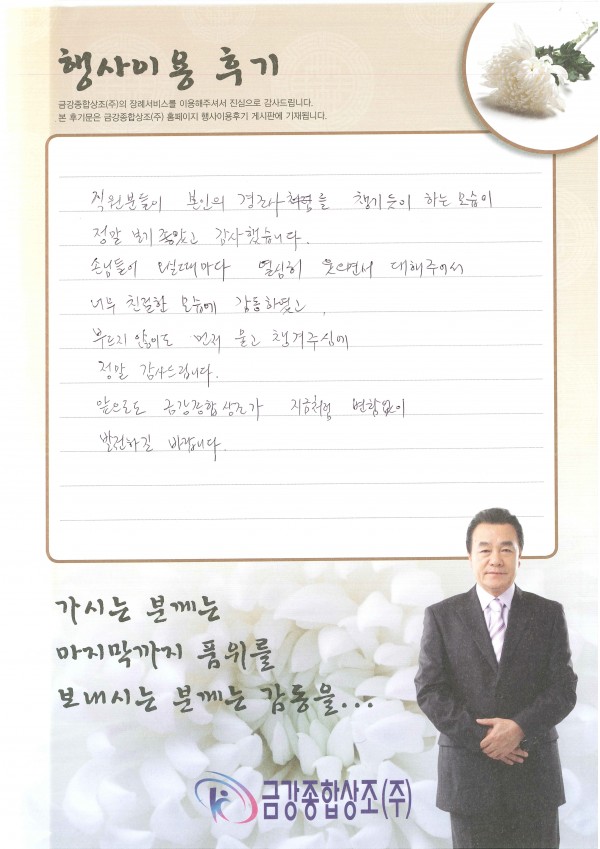 행사이용 후기
금강종합상조(주)의 장례서비스를 이용해주셔서 진심으로 감사드립니다.
본 후기문은 금강종합상조(주) 홈페이지 행사이용후기 게시판에 기재됩니다.
직원분들이 본인의 경조사처럼을 챙기듯이 하는 모습이
정말 보기 좋았고 감사했습니다.
손님들이 오실때마다 열심히 웃으면서 대해주어서
너무 친절한 모습에 감동하였고,
부르지 않아도 먼저 묻고 챙겨주심에
정말 감사드립니다.
앞으로도 금강종합상조가 지금처럼 변함없이
발전하길 바랍니다.
가시는 분께는
마지막까지 품위를
보내시는 분께는 감동을...
금강종합상조(주)